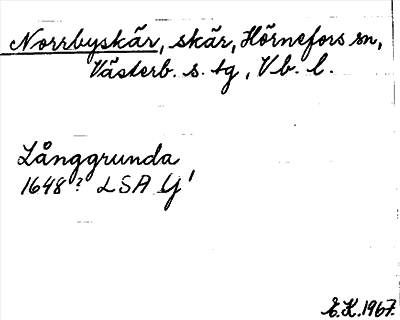 Norrbyskär, skär, Hörnefors sn,
Västerb. s. tg, Vb. l.
Långgrunda
1648? LSA Y'
E.K. 1967.